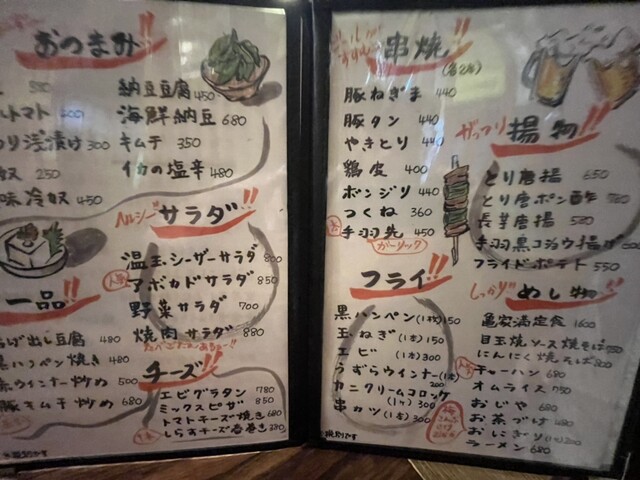 おつまみ!!
納豆豆腐 450
トマト 400
海鮮納豆 680
浅漬け 300
キムチ 350
奴 250
イカの塩辛 480
味冷奴 450
ヘルシー
サラダ!!
温玉シーザーサラダ 800
アボカドサラダ 850
野菜サラダ 700
焼肉サラダ 880
一品
げ出し豆腐 480
黒ハンペン焼き 480
赤ウインナー炒め 500
豚キムチ炒め 680
チーズ!!
エビグラタン 780
ミックスピザ 850
トマトチーズ焼き 680
しらすチーズ春巻き 380
串焼!!
(各2本)
豚ねぎま 440
豚タン 440
やきとり 440
鶏皮 400
ボンジリ 440
つくね 360
手羽先 450
ガーリック
フライ!!
黒ハンペン(1枚)150
玉ねぎ(1本)150
エビ(1本)300
うずらウインナー(1本)200
カニクリームコロッケ
(1ヶ)300
串カツ(1本)300
ガッツリ
揚物!!
とり唐揚 650
とり唐ポン酢 780
長芋唐揚 580
手羽黒コショウ揚げ
フライドポテト 550
しっかり
めし物!!
亀家満足食 1600
目玉焼ソース焼そば
にんにく焼そば 800
チャーハン
オムライス 750
おじや 680
お茶づけ 480
おにぎり(1ヶ)200
ラーメン 680